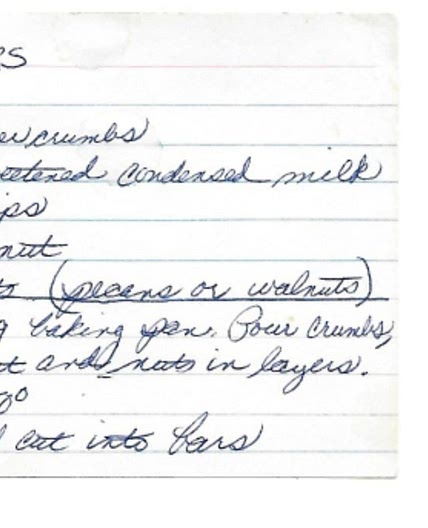 rs
er crumbs
eetened condensed milk
ips
nut
ts (pecans or walnuts)
g baking pan. Pour crumbs,
t and nuts in layers.
0°
cut into bars